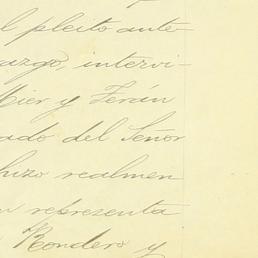 l pleito ante-
azgo, intervi-
Mier y Terán
ado del Señor
hizo realmen
representa
Rondero y